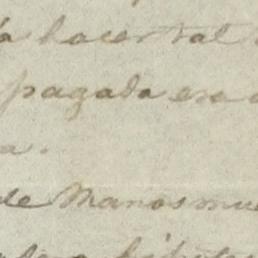 a hacer tal
pagada esa
a.
de Manos mue